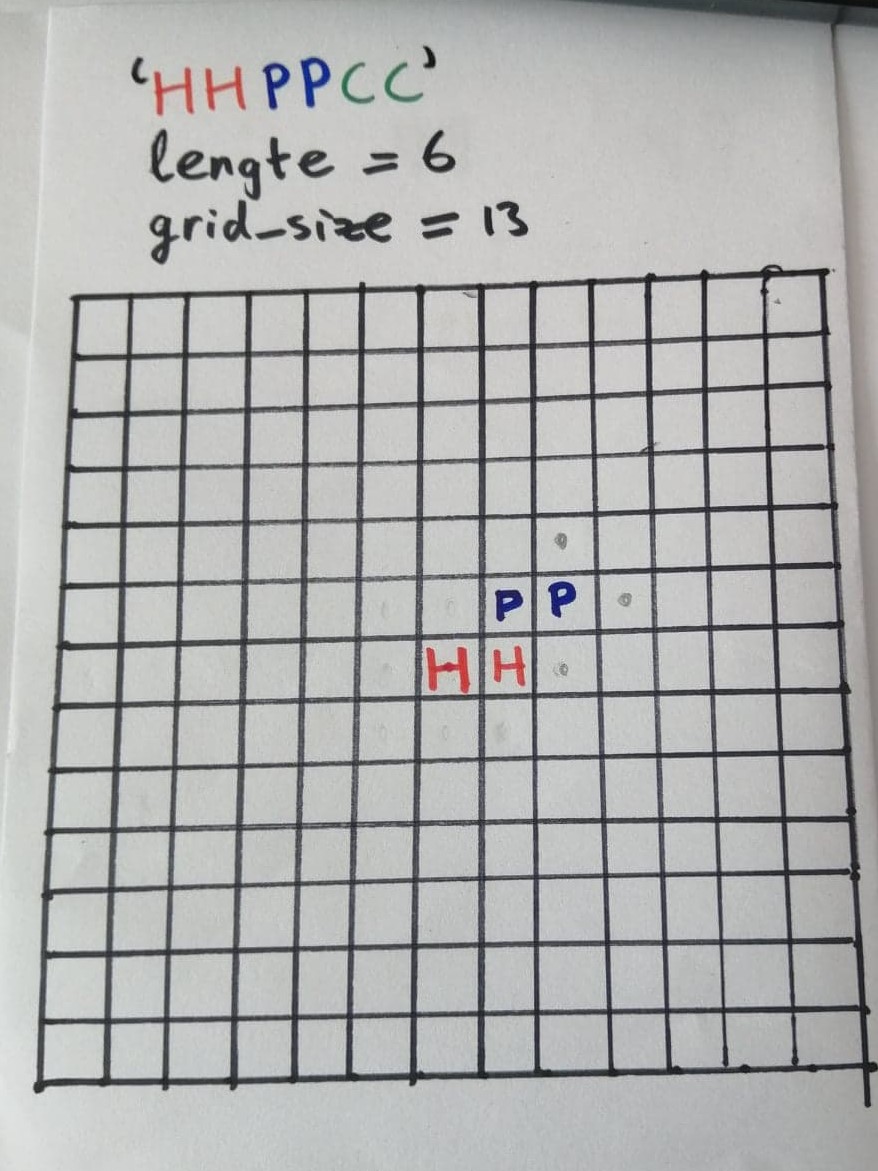 'HHPPCC'
lengte = 6
grid-size = 13
P P
H H